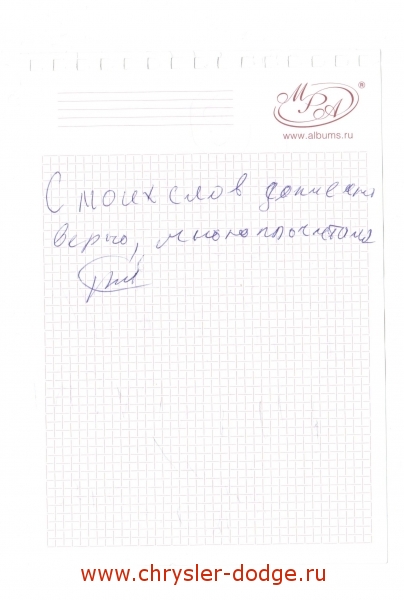 МРА ®
www.albums.ru
С моих слов записано
верно, мною прочитано
www.chrysler-dodge.ru